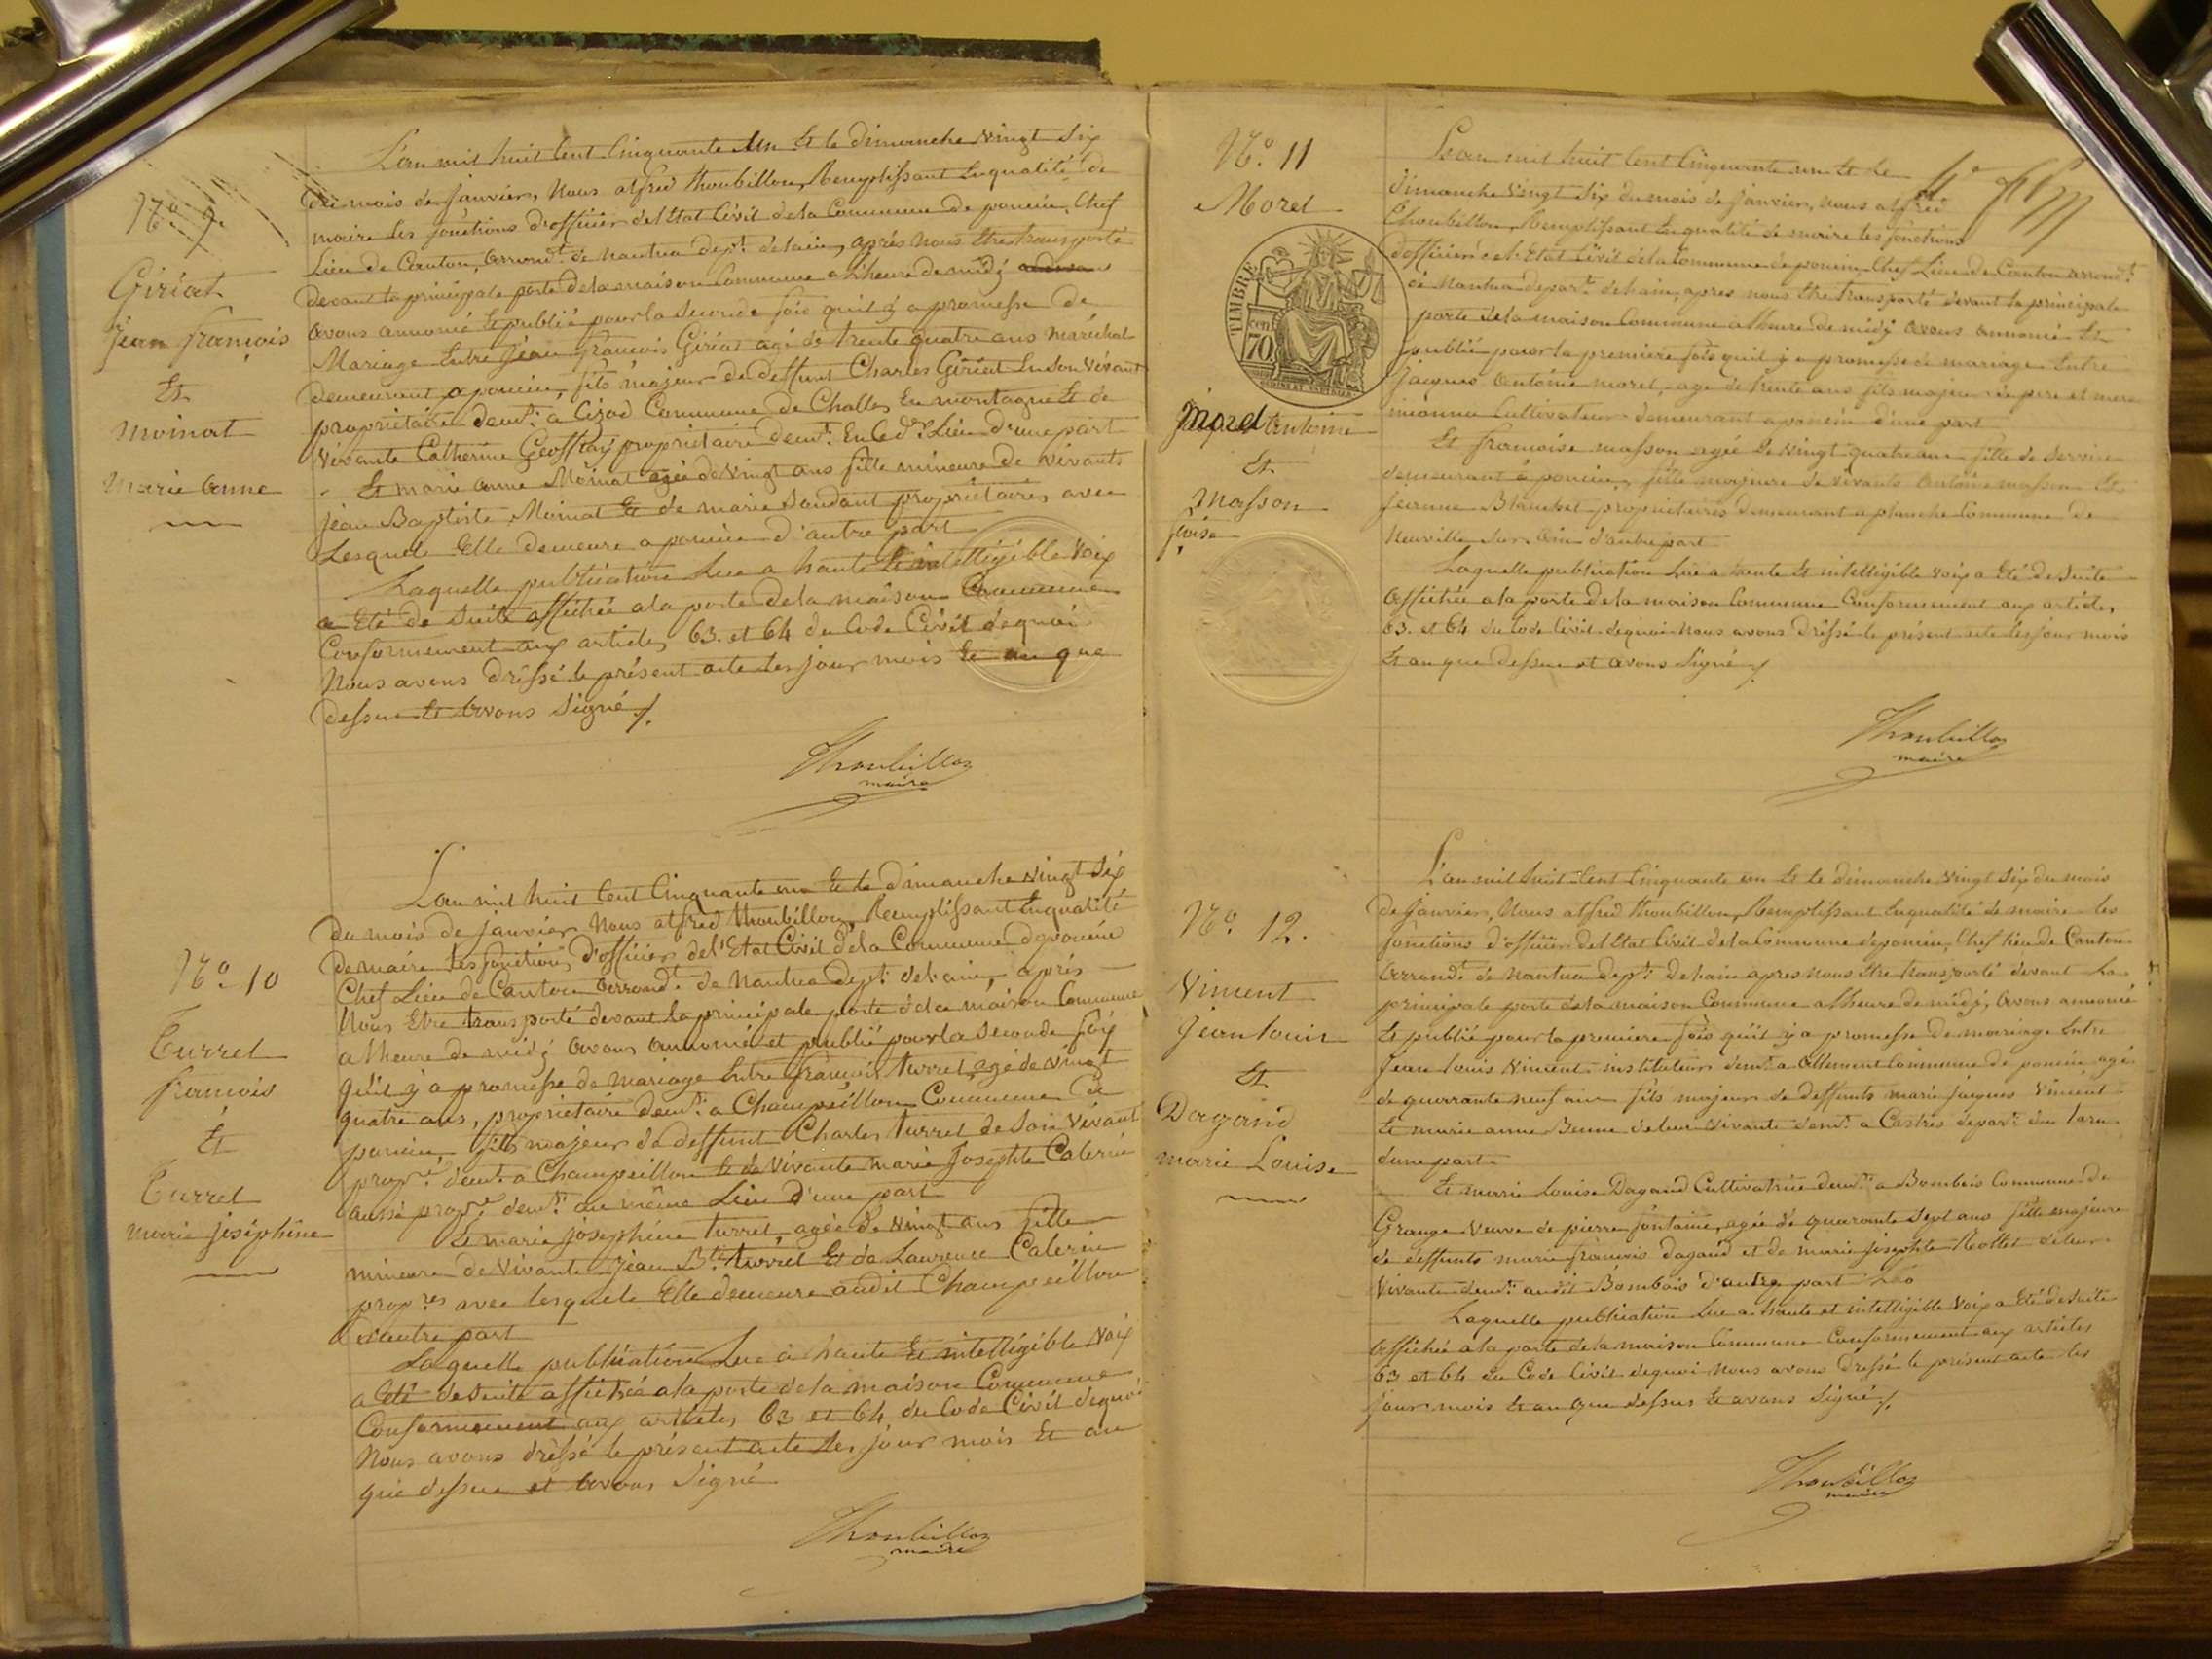 N° 9.
Giriat
Jean françois
Et
moinat
marie anne
L'an mil huit Cent Cinquante Un Et le dimanche vingt Six
du mois de janvier, Nous alfred thoubillon, Remplissant En qualité de
maire les fonctions d'officier de l'Etat Civil de la Commune de poncin, Chef
Lieu de Canton, arrond.t de nantua dep.t de l'ain, après nous être transporté
devant la principale porte de la maison Commune a L'heure de midi
avons annoncé Et publié pour la seconde fois qu'il y a promesse de
Mariage Entre Jean françois Giriat agé de trente quatre ans maréchal
demeurant a poncin, fils majeur de deffunt Charles Giriat En son vivant
propriétaire dem.t a Cizod Commune de Challes En montagne Et de
vivante Catherine Geoffray propriétaire dem.t En led.t Lieu d'une part
Et marie anne Moinat agée de vingt ans fille mineure de vivants
jean Baptiste Moinat Et de marie Dandant propriétaires, avec
Lesquels Elle demeure a poncin d'autre part
Laquelle publication Lue a haute Et intelligible Voix
a Eté de suite affichée a la porte de la maison Commune
Conformement aux articles 63. et 64 du Code Civil de quoi
Nous avons dréssé le présent acte les jour mois Et an que
dessus Et avons Signé /.
Thoubillon
maire
N° 10
Turrel
francois
Et
Turrel
marie joséphine
L'an mil huit Cent Cinquante un Et le dimanche vingt Six
du mois de janvier, Nous alfred thoubillon, Remplissant En qualité
de maire Les fonctions d'officier de l'Etat Civil de la Commune de poncin
Chef Lieu de Canton arrond.t de Nantua dep.t de l'ain, après
Nous Etre transporté devant la principale porte de la maison Commune
a l'heure de midi avons annoncé et publié pour la seconde fois
qu'il y a promesse de mariage Entre françois turrel, agé de vingt
quatre ans, propriétaire dem.t a Champeillon Commune de
poncin, fils majeur de deffunt Charles turrel de Son Vivant
prop.re dem.t a Champeillon Et de Vivante marie Josephte Calerin
aussi prop.re dem.t au même Lieu d'une part
Et marie joséphine turrel, agée de vingt ans fille
mineure de Vivants Jean B.te turrel Et de Laurence Calerin
prop.res avec lesquels Elle demeure audit Champeillon
D'autre part
Laquelle publication Lue a haute Et intelligible Voix
a Eté de suite affichée a la porte de la maison Commune
Conformement aux articles 63 et 64, du Code Civil de quoi
Nous avons dréssé le présent acte Les jour mois Et an
que dessus et avons Signé
Thoubillon
maire
N° 11
Morel
TIMBRE
70
Morel Antoine
Et
Masson
f.çoise
L'an mil huit Cent Cinquante un Et le
dimanche vingt Six du mois de janvier, nous alfred
thoubillon, Remplissant En qualité de maire les fonctions
d'officier de l'Etat Civil de la Commune de poncin Chef Lieu de Canton arrond.t
de Nantua depart.t de l'ain, apres nous Etre transporté devant la principale
porte de la maison Commune a l'heure de midi avons annoncé Et
publié pour la premiere fois qu'il y a promesse de mariage Entre
Jacques Antoine morel, agé de trente ans fils majeur de pere et mere
inconnu Cultivateur demeurant a poncin d'une part
Et francoise masson agée de vingt quatre ans fille de service
demeurant à poncin, fille majeure de vivants Antoine masson Et
Jeanne Blanchet propriétaires demeurant a planche Commune de
Neuville Sur ain d'autre part
Laquelle publication Lue a haute Et intelligible voix a Eté de suite
affichée a la porte de la maison Commune Conformement aux articles
63. et 64 du Code Civil de quoi Nous avons dréssé le présent acte les jour mois
Et an que dessus et avons Signé /.
Thoubillon
maire
N° 12.
Vincent
Jean louis
Et
Dagand
marie Louise
L'an mil huit Cent Cinquante un Et le dimanche vingt Six du mois
de Janvier, Nous alfred thoubillon, Remplissant En qualité de maire les
fonctions d'officier de l'Etat Civil de la Commune de poncin, Chef lieu de Canton
arrond.t de nantua dep.t De l'ain apres nous Etre transporté devant La
principale porte de la maison Commune a l'heure de midi, avons annoncé
Et publié pour la premiere fois qu'il y a promesse De mariage Entre
Jean louis Vincent instituteur dem.t a allement Commune de poncin, agé
de quarante neuf ans fils majeur de deffunts marie Jacques Vincent
Et marie anne Brune de leur vivante dem.t a Castres depar.t du tarn
d'une part
Et marie Louise Dagand Cultivatrice dem.t a Bombois Commune de
Grange veuve de pierre fontaine, agée de quarante sept ans fille majeure
de deffunts marie francois dagand et de marie josephte Rollet de leur
vivante dem.t audit Bombois d'autre part
Laquelle publication Lue a haute et intelligible Voix a Eté de suite
affichée a la porte de la maison Commune Conformement aux articles
63 et 64 du Code Civil de quoi nous avons dréssé le présent acte les
jour mois Et an que dessus Et avons Signé /.
Thoubillon
maire